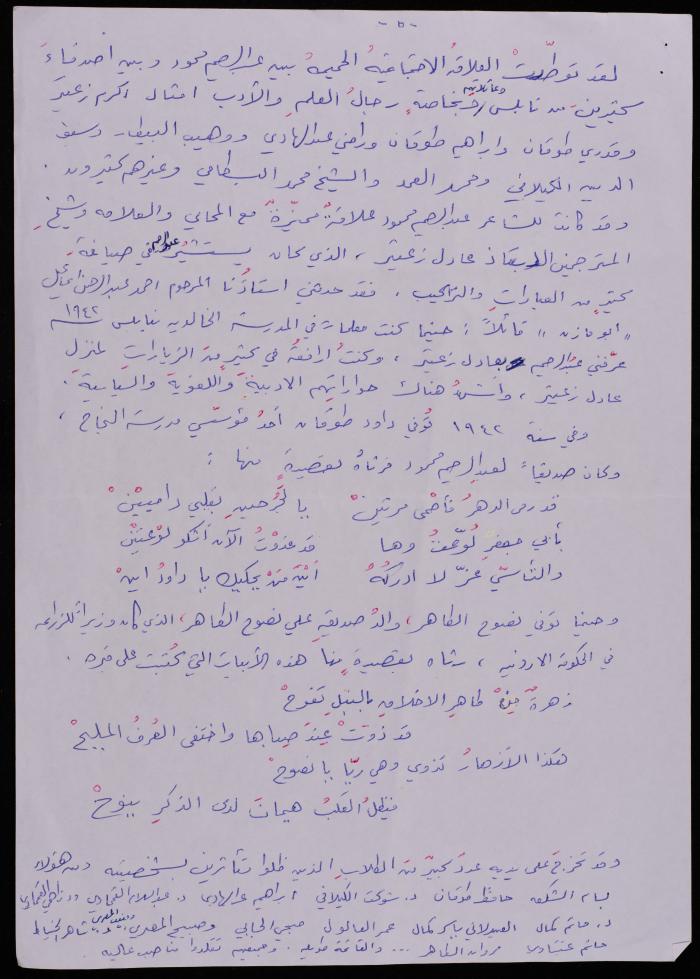 - ٥ -
لقد توطّدتْ العلاقةُ الاجتماعيةُ الحميمةُ بين عبدالرحيم محمود وبين أصدقاءَ
كثيرين من نابلس وعائلاته وبخاصةٍ رجالُ العلمِ والأدب امثال اكرم زعيتر
وقدري طوقان وابراهيم طوقان وراضي عبدالهادي ووهيب البيطار وسيف
الدين الكيلاني وحمد العمد والشيخ محمد البسطامي وغيرهم كثيرون .
وقد كانت للشاعر عبدالرحيم محمود علاقةٌ مميّزةٌ مع المحامي والعلامه وشيخِ
المترجمين الاستاذ عادل زعيتر ، الذي كان يستشيرُ عبدالرحيم في صياغةِ
كثيرٍ من العباراتِ والتراكيب . فقد حدثني استاذُنا المرحوم احمد عبدالرحمن اسماعيل
"ابو مازن" قائلاً : حينما كنت معلماً في المدرسة الخالديه بنابلس ١٩٤٢
عرّفني عبدالرحيم بعادل زعيتر ، وكنتُ ارافقهُ في كثيرٍ منَ الزياراتِ لمنزلِ
عادل زعيتر ، وأشهدُ هناك حواراتِهم الادبيةَ واللغويةَ والسياسيةَ .
وفي سنة ١٩٤٢ تُوفي داود طوقان أحدُ مؤسّسي مدرسة النجاح ،
وكان صديقاً لعبدالرحيم محمود فرثاهُ بقصيدةٍ منها :
قد رمى الدهرُ فأصْمى مرتينْ يا لَجُرحينِ بقلبي دامِيَيْنْ
بأبي جعفرٍ لُوّعْتُ وها قد غدوْتُ الآن أشكو لوْعتيْنْ
والتأسّي عزّ لا ادركُهُ أيْنَ مَنْ يحكيك يا داودُ اينْ
وحينما توفي نصوح الطاهر، والدُ صديقهِ علي نصوح الطاهر، الذي كان وزيراً للزراعه
في الحكومة الاردنيه ، رثاه بقصيدةٍ منها هذه الأبيات التي كُتبت على قبره .
زهرةٌ مِنْ طاهرِ الاخلاقِ بالنبلِ تفوحْ
قد ذوَتْ عِندَ صِباها واختفى العُرفُ المليحْ
هكذا الأزهارُ تذوي وهي ريّا يا نصوحْ
فيظلُ القلبُ هيمانَ لدى الذكرِ ينوحْ
وقد تخرجَ على يديه عددٌ كبيرٌ منَ الطلابِ الذين ظلوا متأثرين بشخصيتِه ومن هؤلاء
بسام الشكعه حافظ طوقان د. شوكت الكيلاني ابراهيم عبدالهادي د. عبدالسلام القمحاوي
د. حاتم كمال الصيدلاني ياسر كمال عمر العالول صبحي الجابي وصبيح المصري وشاهر الخياط
مروان الطاهر ... والقائمة طويله . وجميعهم تقلدوا مناصب عاليه .